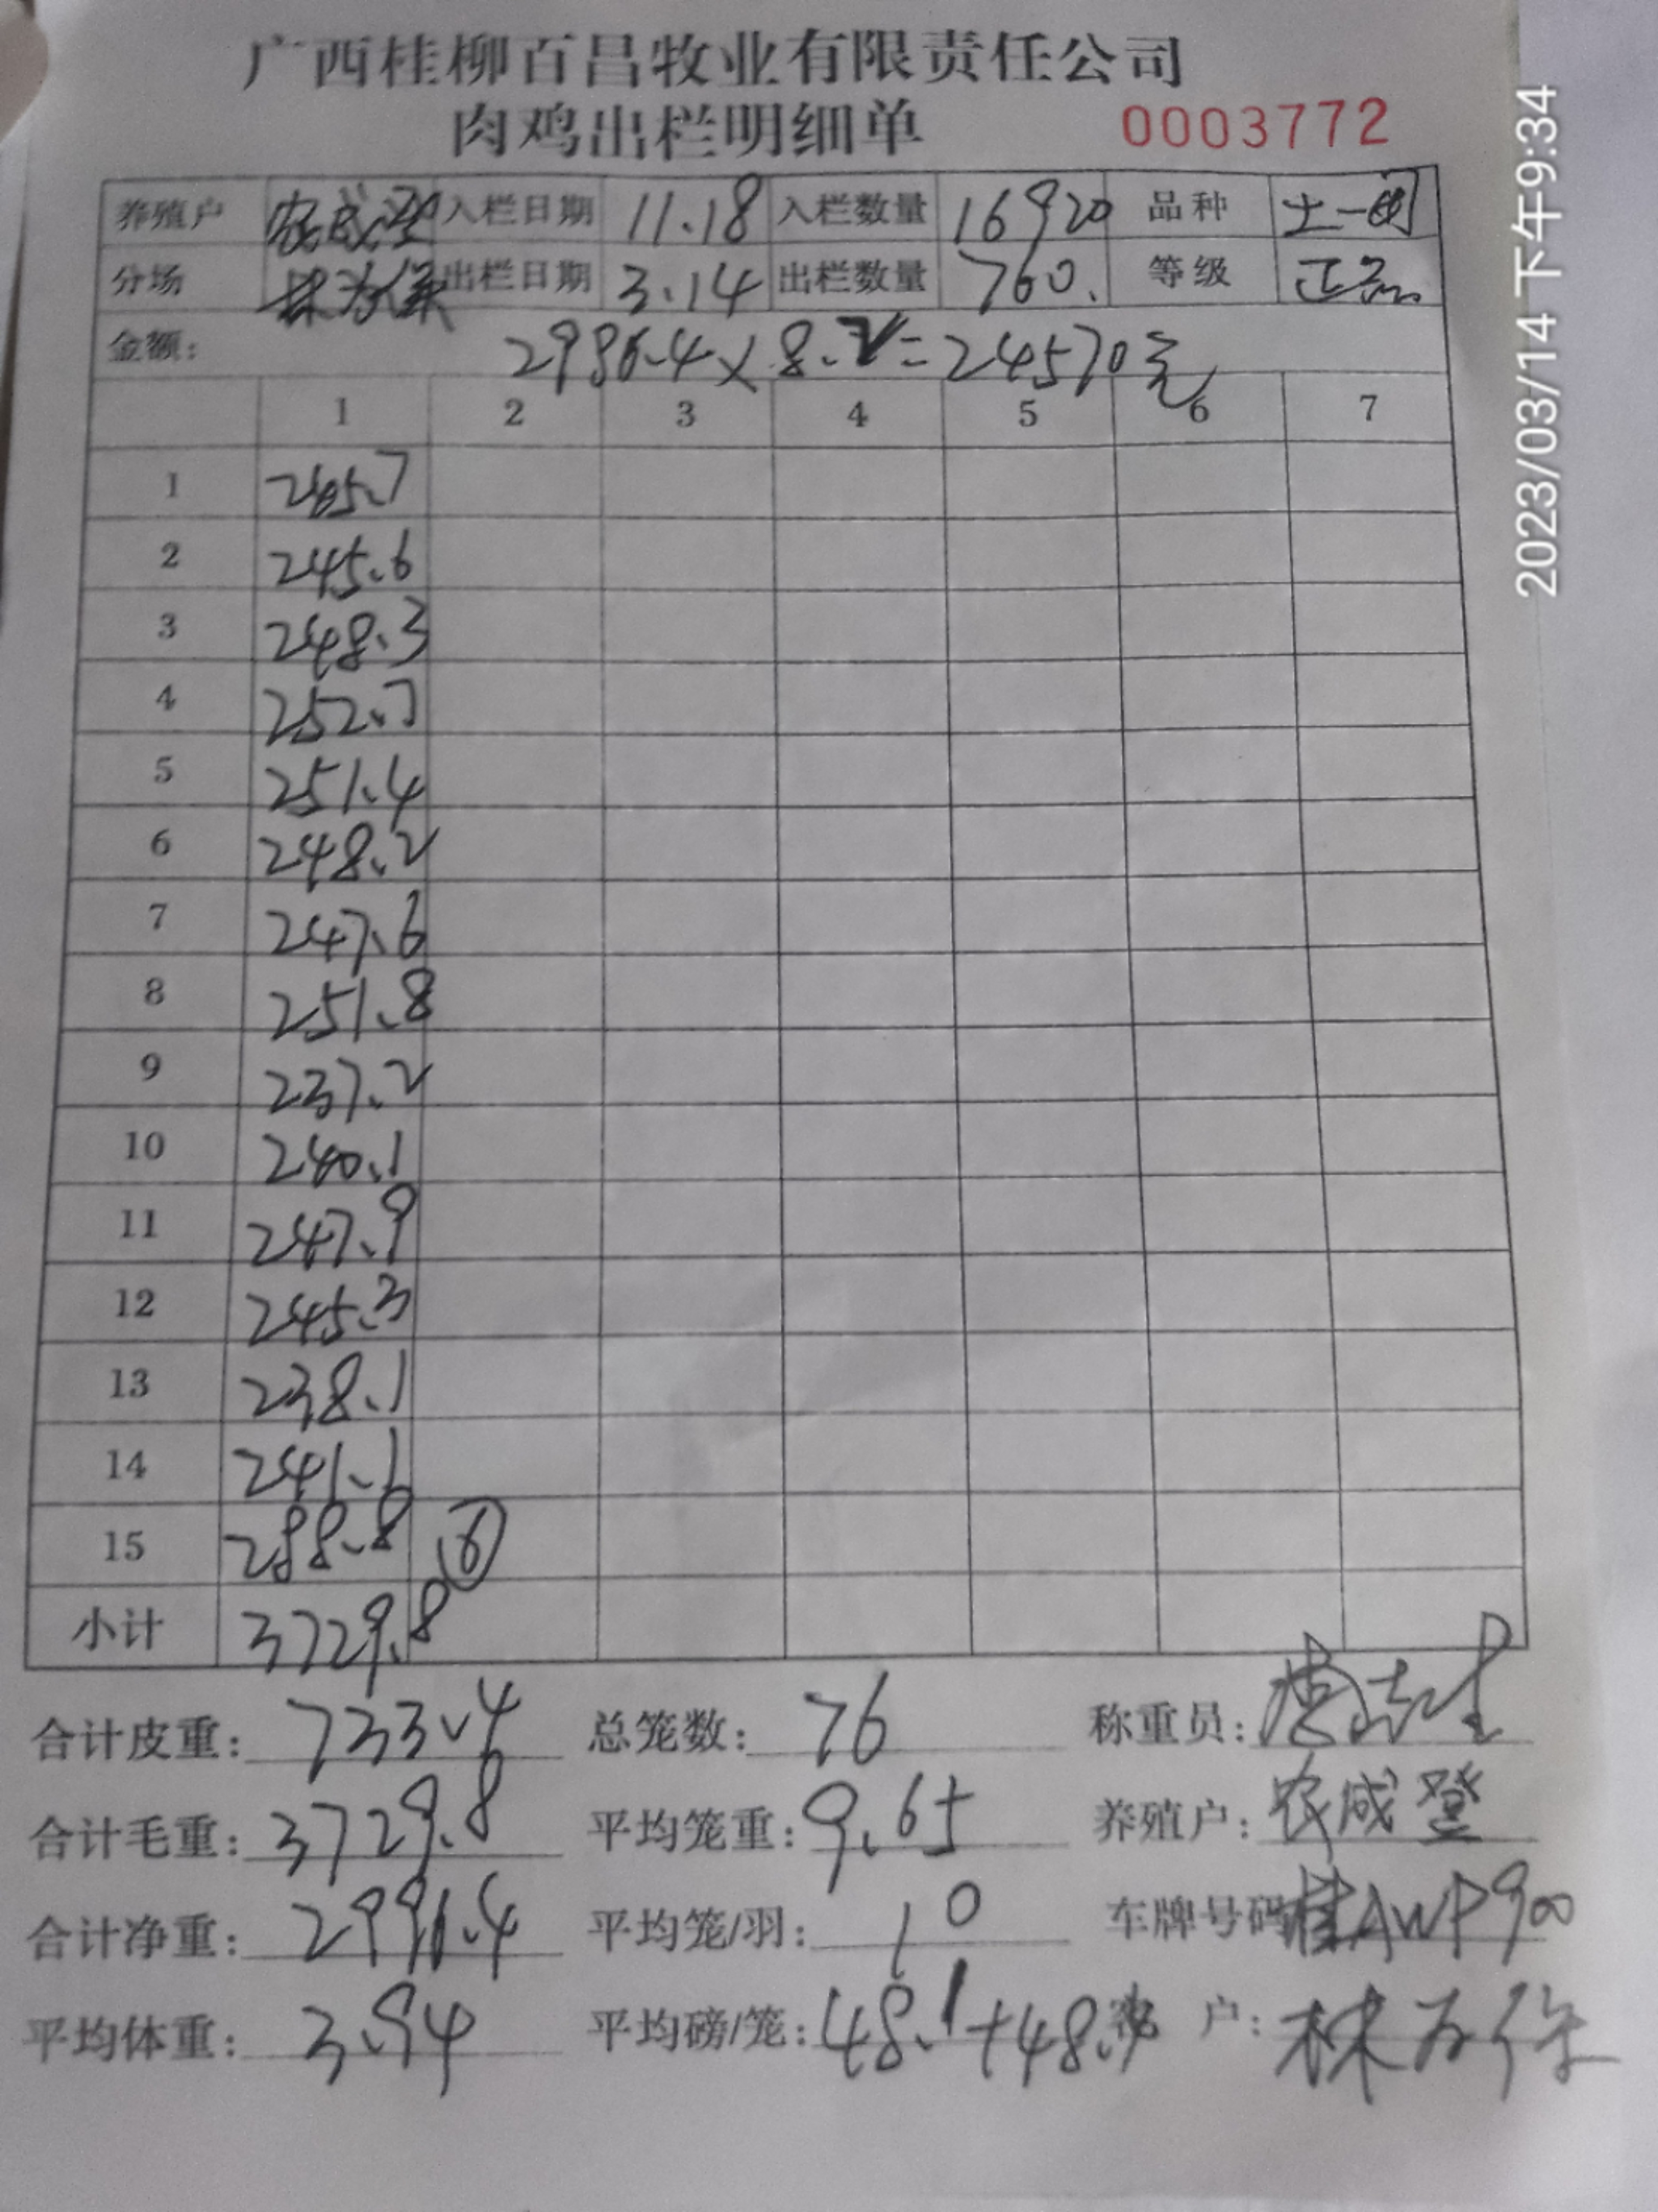 广西桂柳百昌牧业有限责任公司
肉鸡出栏明细单 0003772
养殖户 农成登 入栏日期 11.18 入栏数量 16920 品种 土一
分场 出栏日期 3.14 出栏数量 760. 等级 正品
金额: 2996.4×8.2=24570元
1 2 3 4 5 6 7
1 245.7
2 245.6
3 248.3
4 252.7
5 251.4
6 248.2
7 247.6
8 251.8
9 237.2
10 240.1
11 247.9
12 245.3
13 238.1
14 241.1
15 288.8 ⑥
小计 3729.8
合计皮重: 733.4 总笼数: 76 称重员:
合计毛重: 3729.8 平均笼重: 9.65 养殖户: 农成登
合计净重: 2996.4 平均笼/羽: 10 车牌号码 桂AWP900
平均体重: 3.94 平均磅/笼: 48.1+48.4 户: 林
2023/03/14 下午9:34